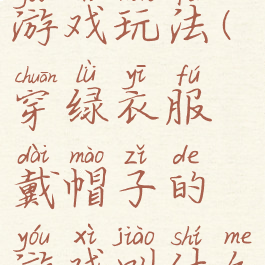 游戏玩法(
chuān lǜ yī fú
穿绿衣服
dài mào zǐ de
戴帽子的
yóu xì jiào shí me
游戏叫什么